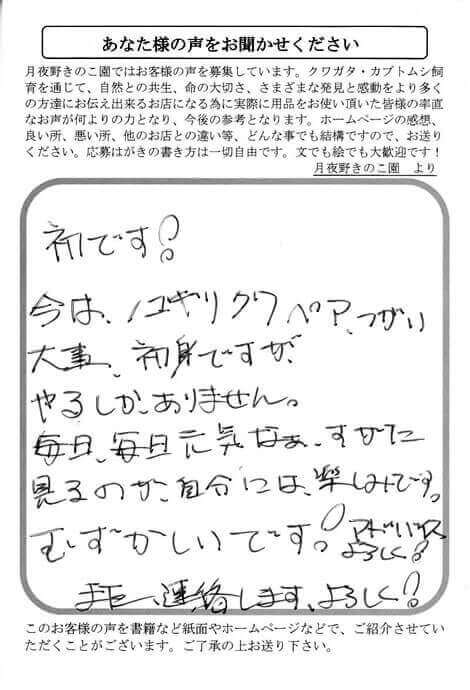 あなた様の声をお聞かせください
月夜野きのこ園ではお客様の声を募集しています。クワガタ・カブトムシ飼
育を通じて、自然との共生、命の大切さ、さまざまな発見と感動をより多く
の方達にお伝え出来るお店になる為に実際に用品をお使い頂いた皆様の率直
なお声が何よりの力となり、今後の参考となります。ホームページの感想、
良い所、悪い所、他のお店との違い等、どんな事でも結構ですので、お送り
ください。応募はがきの書き方は一切自由です。文でも絵でも大歓迎です！
月夜野きのこ園　より
初です!
今は、ノコギリクワ ペア、つがい
大事、初身ですが、
やるしか、ありません。
毎日、毎日元気なぁ、すがた
見るのが、自分には、楽しみです。
むずかしいです! アドバイス
よろしく!
また、連絡します、よろしく!
このお客様の声を書籍など紙面やホームページなどで、ご紹介させてい
ただくことがございます。ご了承の上お送り下さい。